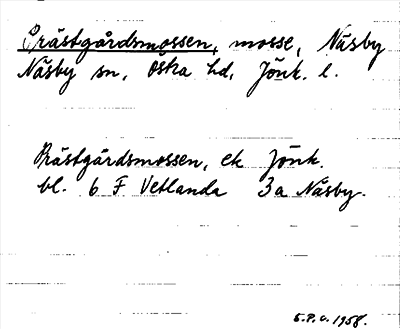 Prästgårdsmossen, mosse, Näsby
Näsby sn, Östra hd, Jönk. l.
Prästgårdsmossen, ek Jönk.
bl. 6 F Vetlanda 3a Näsby.
1958.